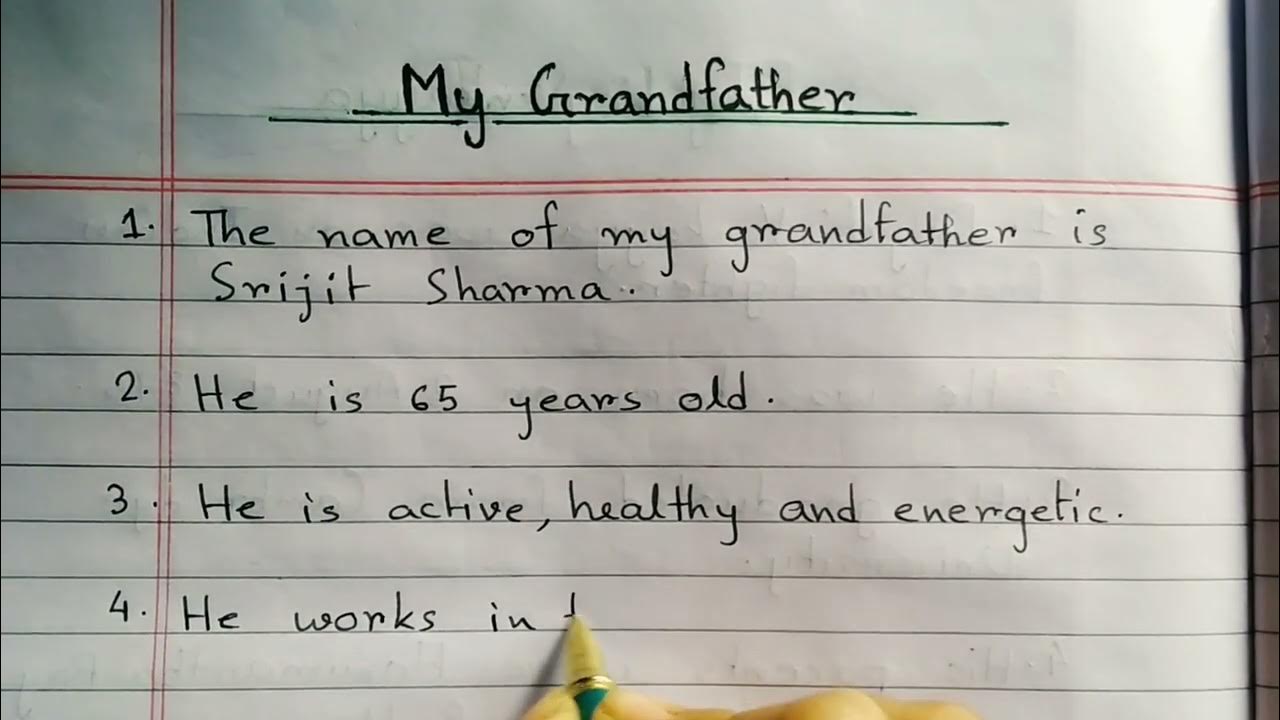 My Grandfather
1. The name of my grandfather is
Srijit Sharma.
2. He is 65 years old.
3. He is active, healthy and energetic.
4. He works in